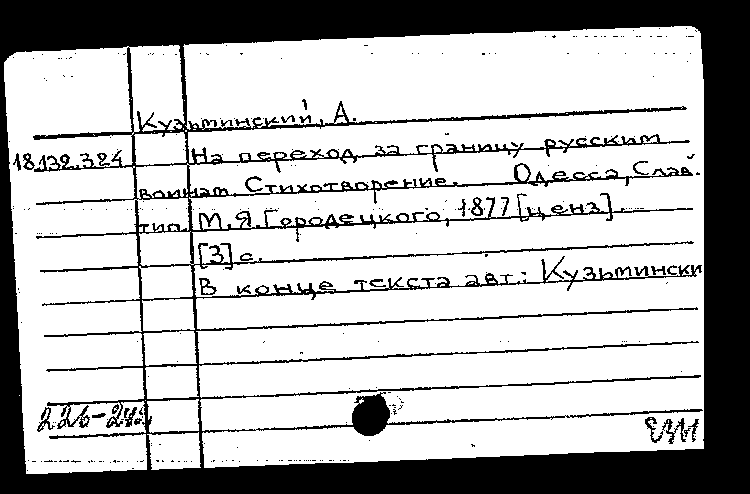 Кузьминский, А.
18.132.324 На переход за границу русским
воинам. Стихотворение. Одесса, Слав.
тип. М.Я.Городецкого, 1877 [ценз].
[3] с.
В конце текста авт.: Кузьмински